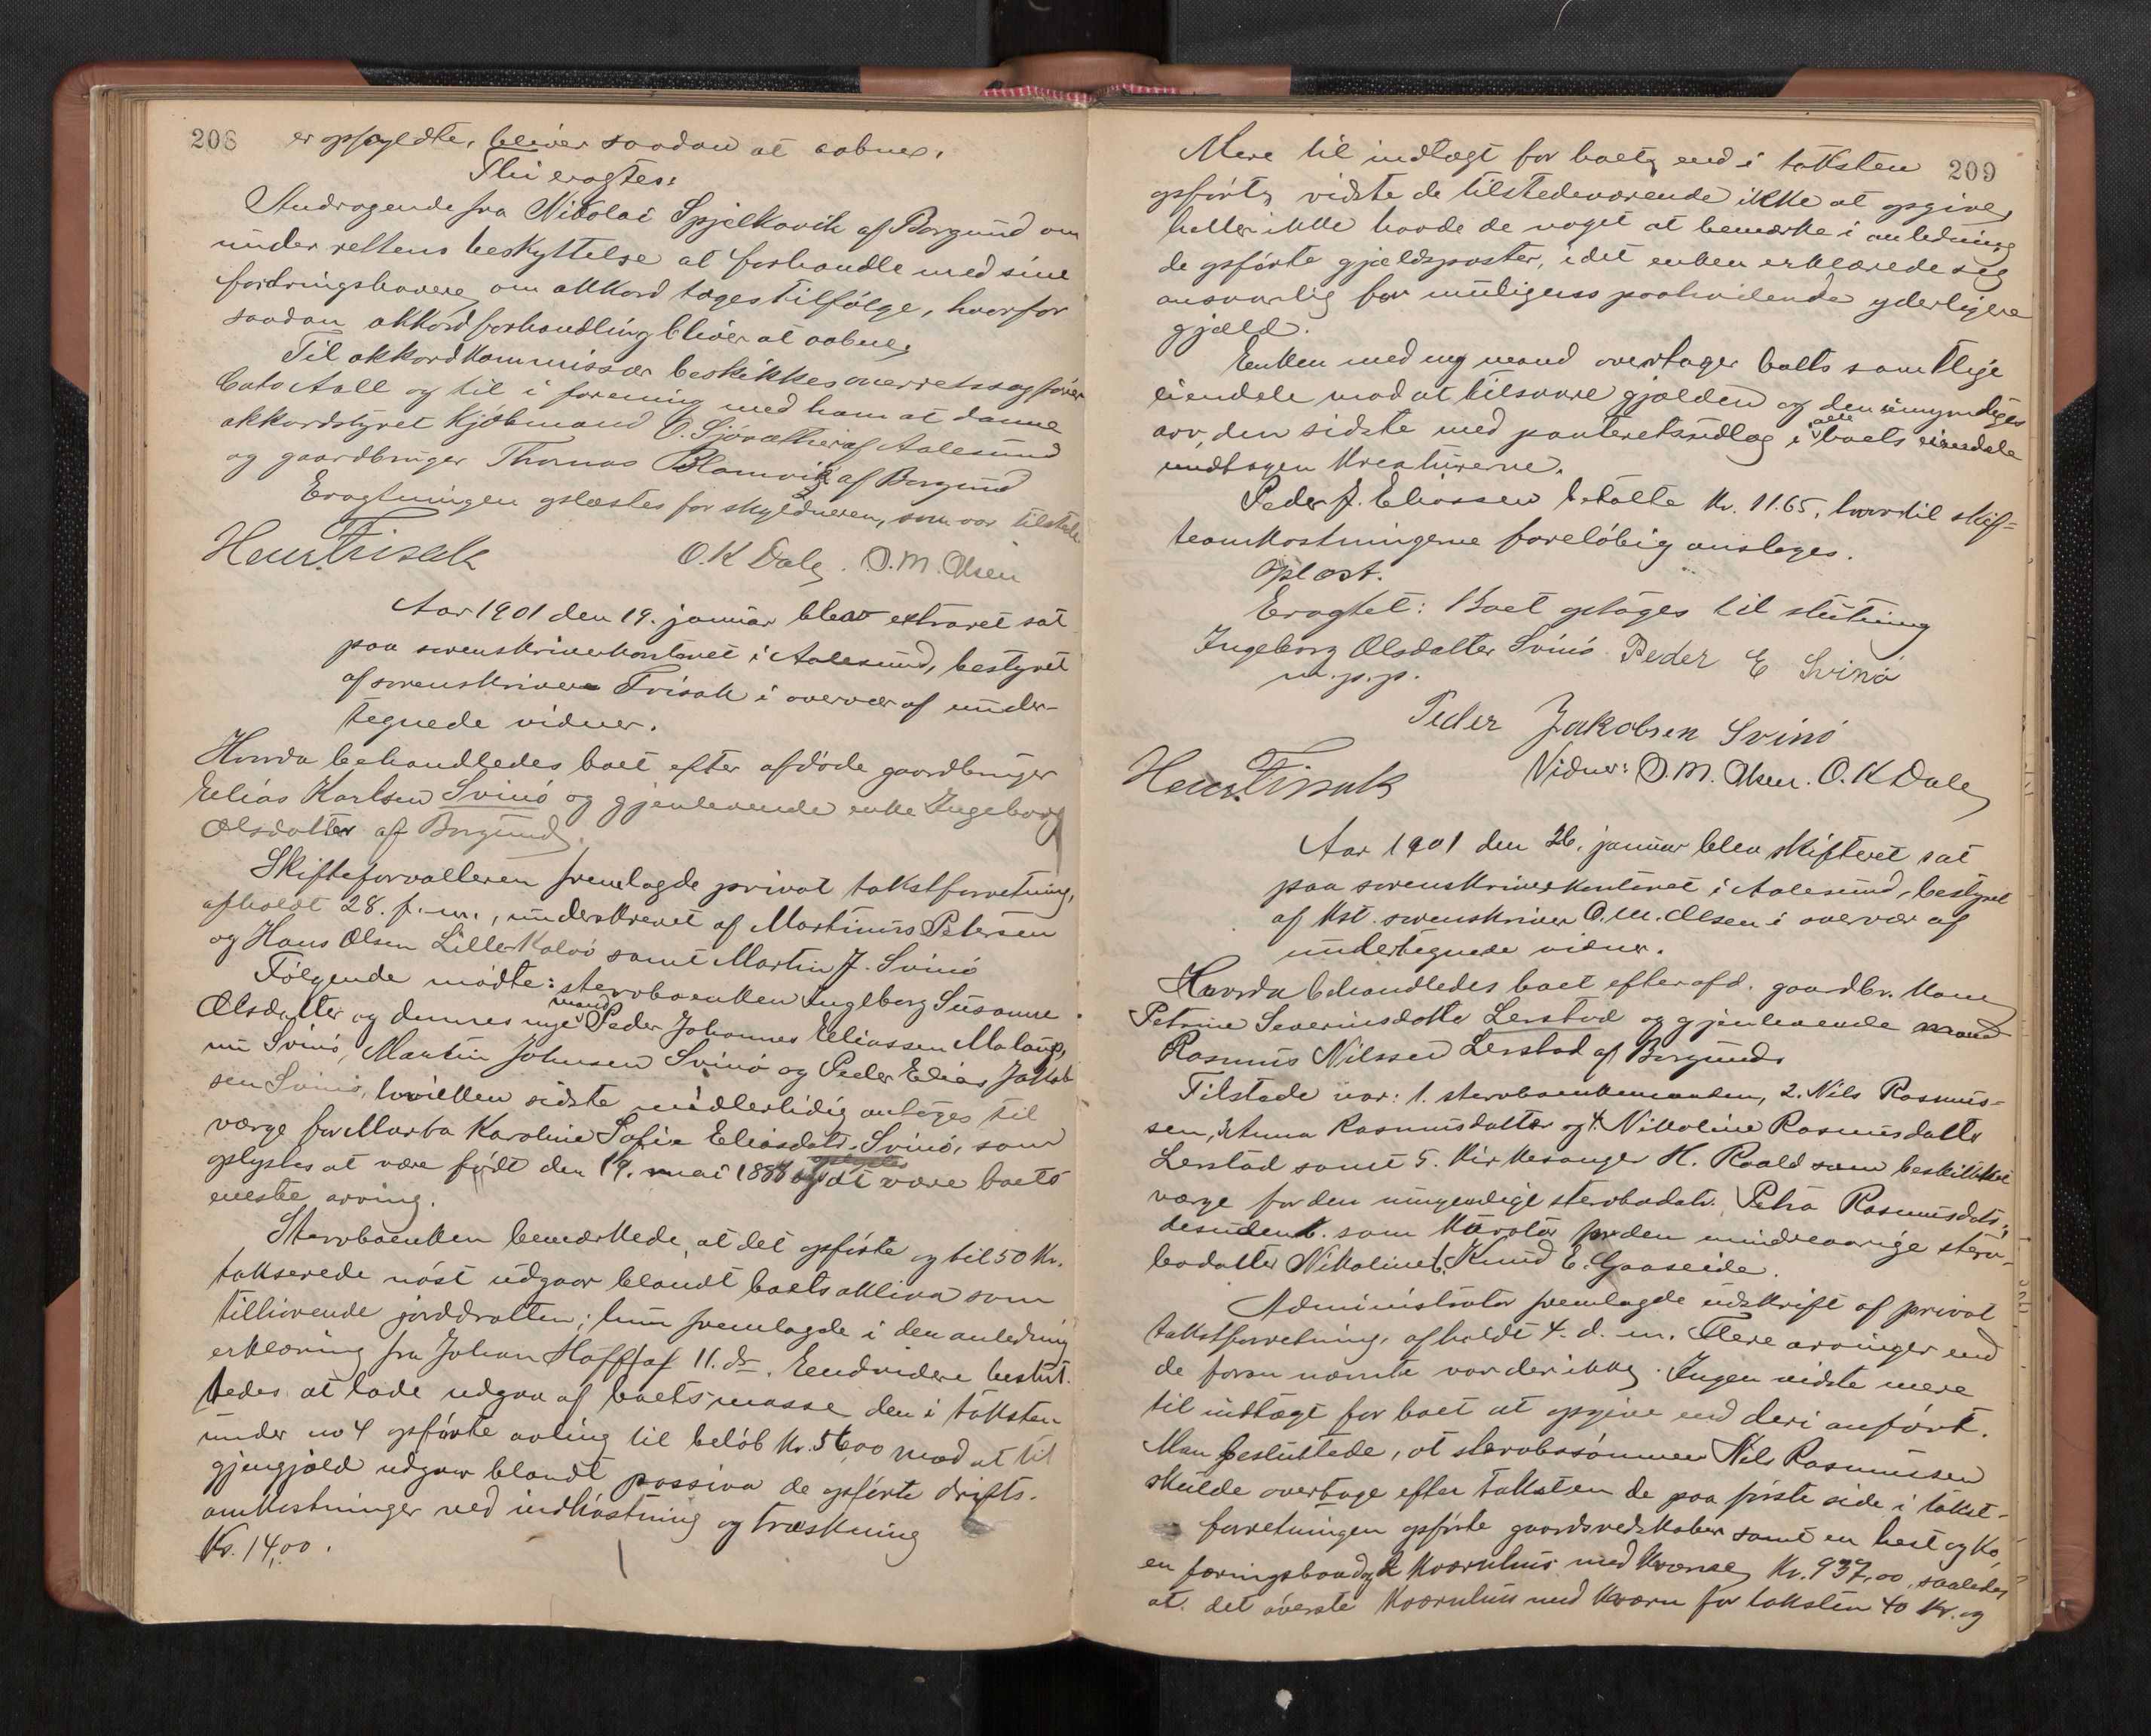 208
er opfyldte, bliver saadan at aabne.
Thi eragtes:
Andragende fra Nikolai Spjelkavik af Borgund om
under rettens beskyttelse at forhandle med sine
fordringshavere om akkord tages tilfølge, hvorfor
saadan akkordforhandling bliver at aabne.
Til akkordkommissær beskikkes overretssagfører
Cato Aall og til i forening med ham at danne
akkordstyret kjøbmand C. af Aalesund
og gaardbruger Thomas Blomvik af Borgund
Eragtningen oplæstes for skyldneren, som var tilstede
Henr. Frisak O. K Dale. O. M. Olsen
Aar 1901 den 19. januar blev extraret sat
paa sorenskriverkontoret i Aalesund, bestyret
af sorenskriver Frisak i overvær af under-
tegnede vidner.
Hvorda behandledes boet efter afdøde gaardbruger
Elias Karlsen Svinø og gjenlevende enke Ingeborg
Olsdatter af Borgund.
Skifteforvalteren fremlagde privat takstforretning,
afholdt 28. f. m., underskrevet af Martinus Petersen
og Hans Olsen Lillekalvø samt Martin J. Svinø
Følgende mødte: stervboenken Ingeborg Susanne
Olsdatter og dennes nye mand Peder Johannes Eliassen Malang,
nu Svinø, Martin Johnsen Svinø og Peder Elias Jakob-
sen Svinø, hvilken sidste midlertidig antages til
værge for Marta Karoline Sofie Eliasdatr. Svinø, som
oplystes at være født den 19. mai 1888 og at være boets
eneste arving.
Stervboenken bemærkede, at det opførte og til 50 kr.
takserede nøst udgaar blandt boets aktiva som
tilhørende jorddrotten; hun fremlagde i den anledning
erklæring fra Johan Hoff af 11. ds. Endvidere beslut-
tedes at lade udgaa af boets masse den i taksten
under no 4 opførte avling til beløb kr. 56,00 mod at til
gjengjæld udgaar blandt passiva de opførte drifts-
omkostninger ved indhøstning og træskning
Kr. 14,00.
209
Mere til indtægt for boet, end i taksten
opført, vidste de tilstedeværende ikke at opgive,
heller ikke havde de noget at bemærke i anledning
de opførte gjældsposter, idet enken erklærede sig
ansvarlig for muligens paahvilende yderligere
gjæld.
Enken med ny mand overtager boets samtlige
eiendele mod at tilsvare gjælden og den umyndiges
arv, den sidste med panteretsudlæg i alle boets eiendele
undtagen kreaturerne.
Peder J. Eliassen betalte kr. 11.65, hvortil skif-
teomkostningerne foreløbig ansloges.
Oplæst.
Eragtet: Boet optages til slutning
Ingeborg Olsdatter Svinø Peder E Svinø
m. p. p.
Peder Jakobsen Svinø
Henr. Frisak Vidner: O. M. Olsen. O. K Dale
Aar 1901 den 26. januar blev skifteret sat
paa sorenskriverkontoret i Aalesund, bestyret
af kst. sorenskriver O. M. Olsen i overvær af
undertegnede vidner.
Hvorda behandledes boet efter afd. gaardbr. kone
Petrine Severinsdatter Lerstad og gjenlevende mand
Rasmus Nilssen Lerstad af Borgund.
Tilstede var: 1. stervboenkemanden, 2. Nils Rasmus-
sen, 3. Anna Rasmusdatter og 4. Nikoline Rasmusdatter
Lerstad samt 5. kirkesanger K. Roald som beskikket
værge for den umyndige stervbodatr. Petra Rasmusdatr.,
desuden 6. som kurator for den mindreaarige sterv-
bodatter Nikoline: Knud E. Gaaseide.
Administrator fremlagde udskrift af privat
takstforretning, afholdt 4. d. m. Flere arvinger end
de foran nævnte var der ikke. Ingen vidste mere
til indtægt for boet at opgive end deri anført.
Man besluttede, at stervbosønnen Nils Rasmussen
skulde overtage efter taksten de paa første side i takst-
forretningen opførte gaardsredskaber samt en hest og ko,
en færingsbaad og 2 kværnhus med kværne, kr. 937,00, saaledes
at det øverste kværnhus med kværn for taksten 40 kr. og